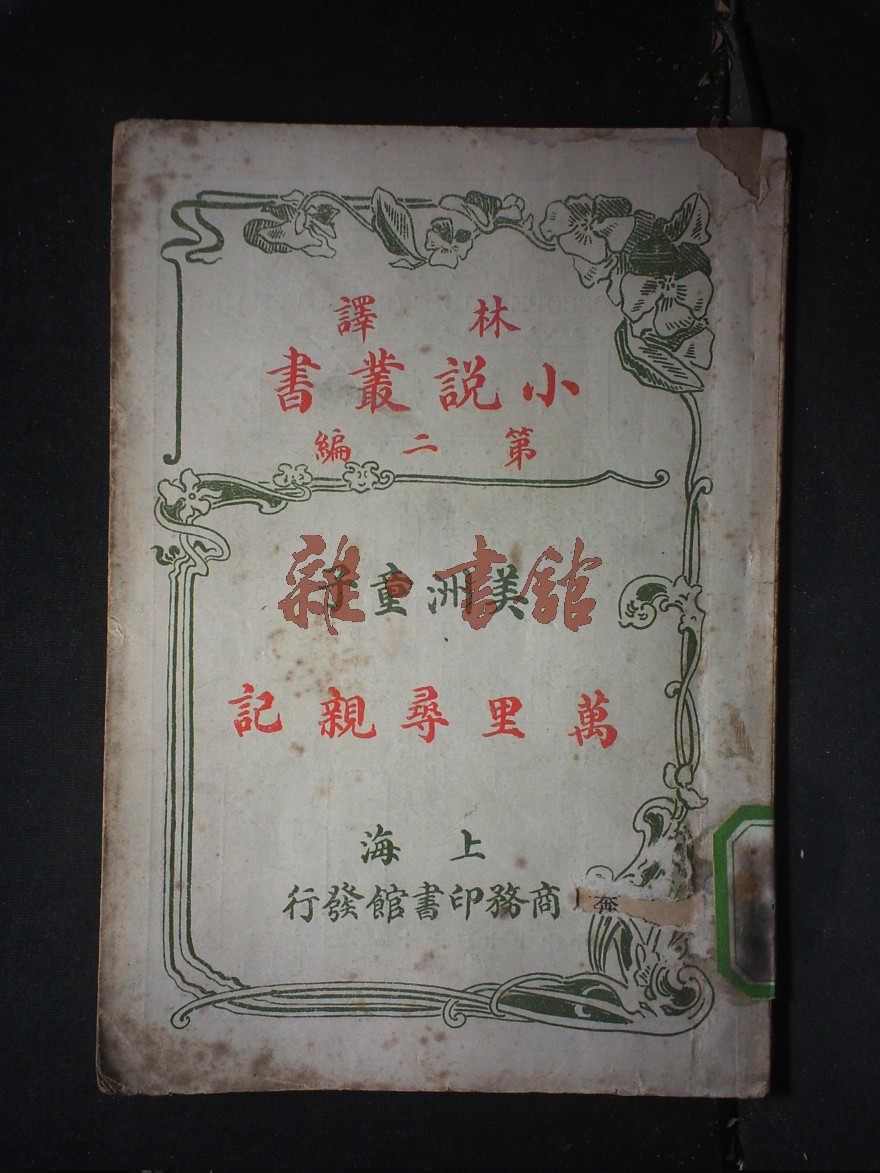 林譯
小説叢書
第二編
美洲童子
萬里尋親記
上海
商務印書館發行
雜·書館